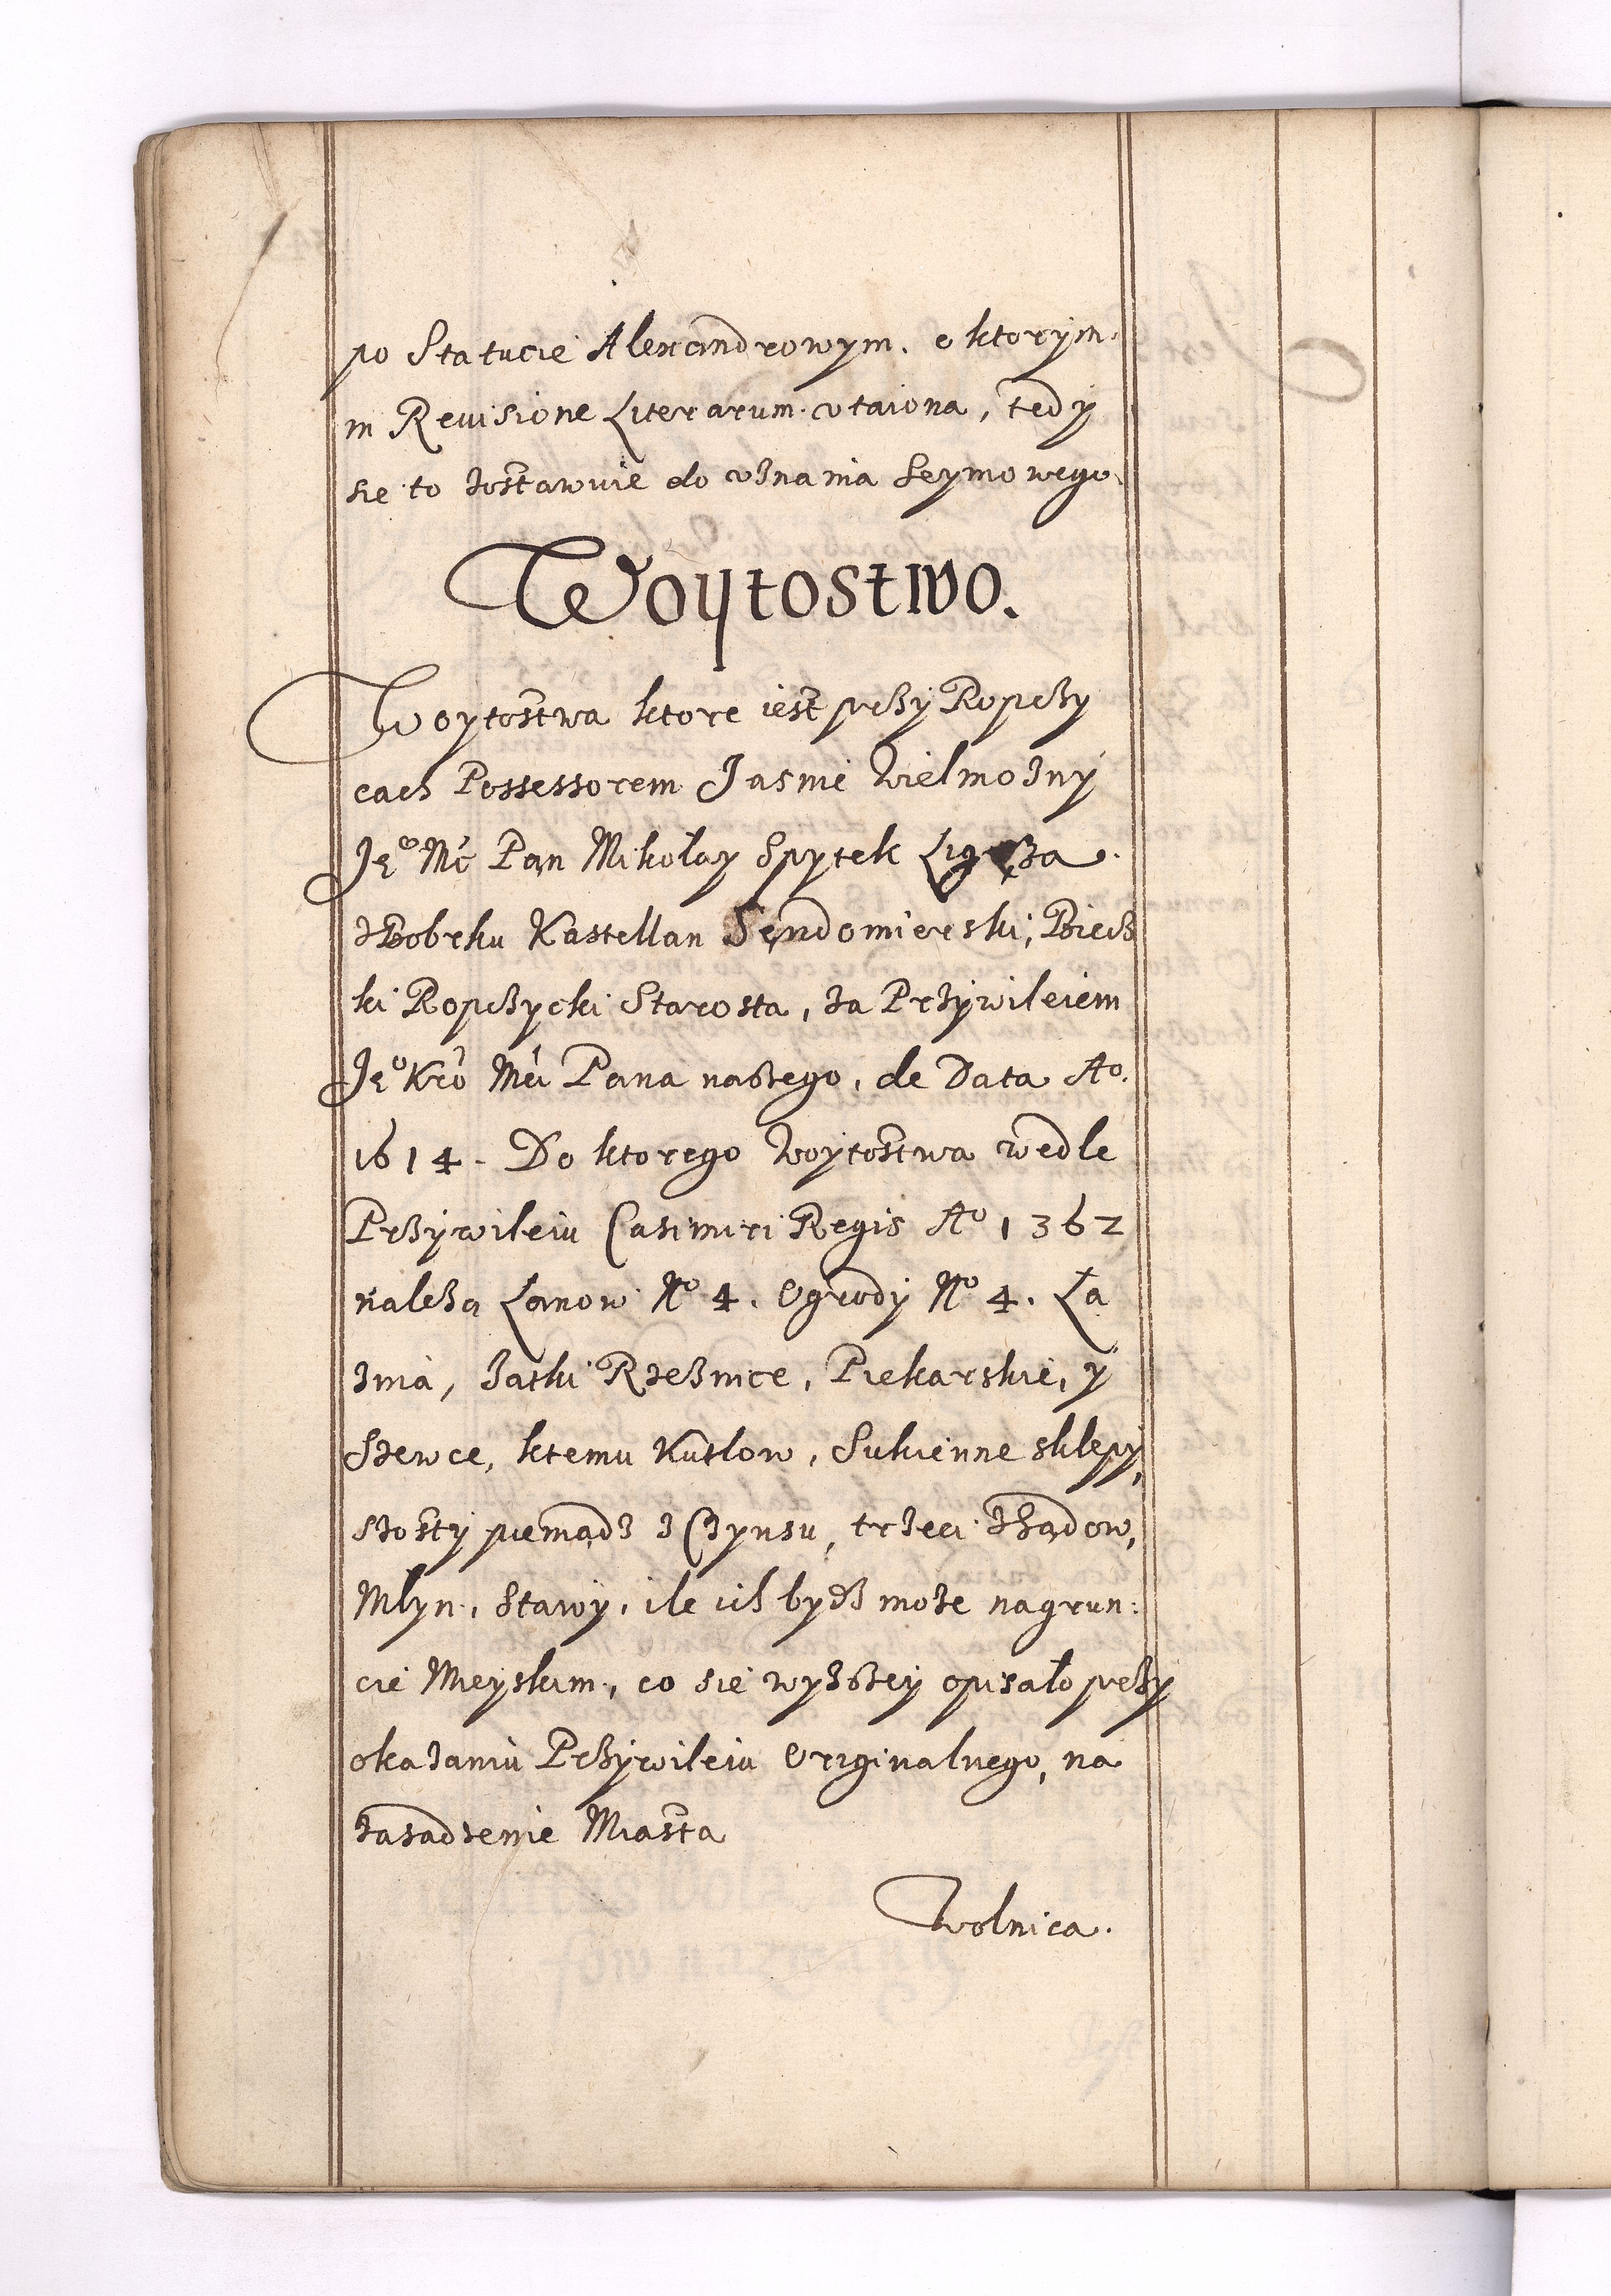 po Statucie Alexandrowym. o ktorym
in Reuisione Literarum. vtaiona, tedy
sie to zostawuie do vznania Seymowego.
Woytostwo.
Woytostwa ktore iest przy Ropczy
cach Possessorem Jasnie Wielmozny
Jeᵒ Mć Pan Mikołay Spytek Ligęza
z Bobrku Kastellan Sendomierski, Biecz
ki Ropczycki Starosta, za Przywileiem
Jeᵒ Kró Mći Pana naszego, de Data Aᵒ.
1614. Do ktorego Woytostwa wedle
Przywileiu Casimiri Regis Aᵒ 1362
naleza Łanow Nᵒ 4. Ogrody Nᵒ 4. Ła
znia, Jatki Rzeznice, Piekarskie, y
Szewce, ktemu Kutłow, Sukienne sklepy,
szosty pieniądz z Czynsu, trzeci z Sądow,
Młyn, Stawy, ile ich bydz może na grun:
cie Mieyskim, co sie wyższey opisało przy
okazaniu Przywileiu Originalnego, na
zasadzenie Miasta
Wolnica.